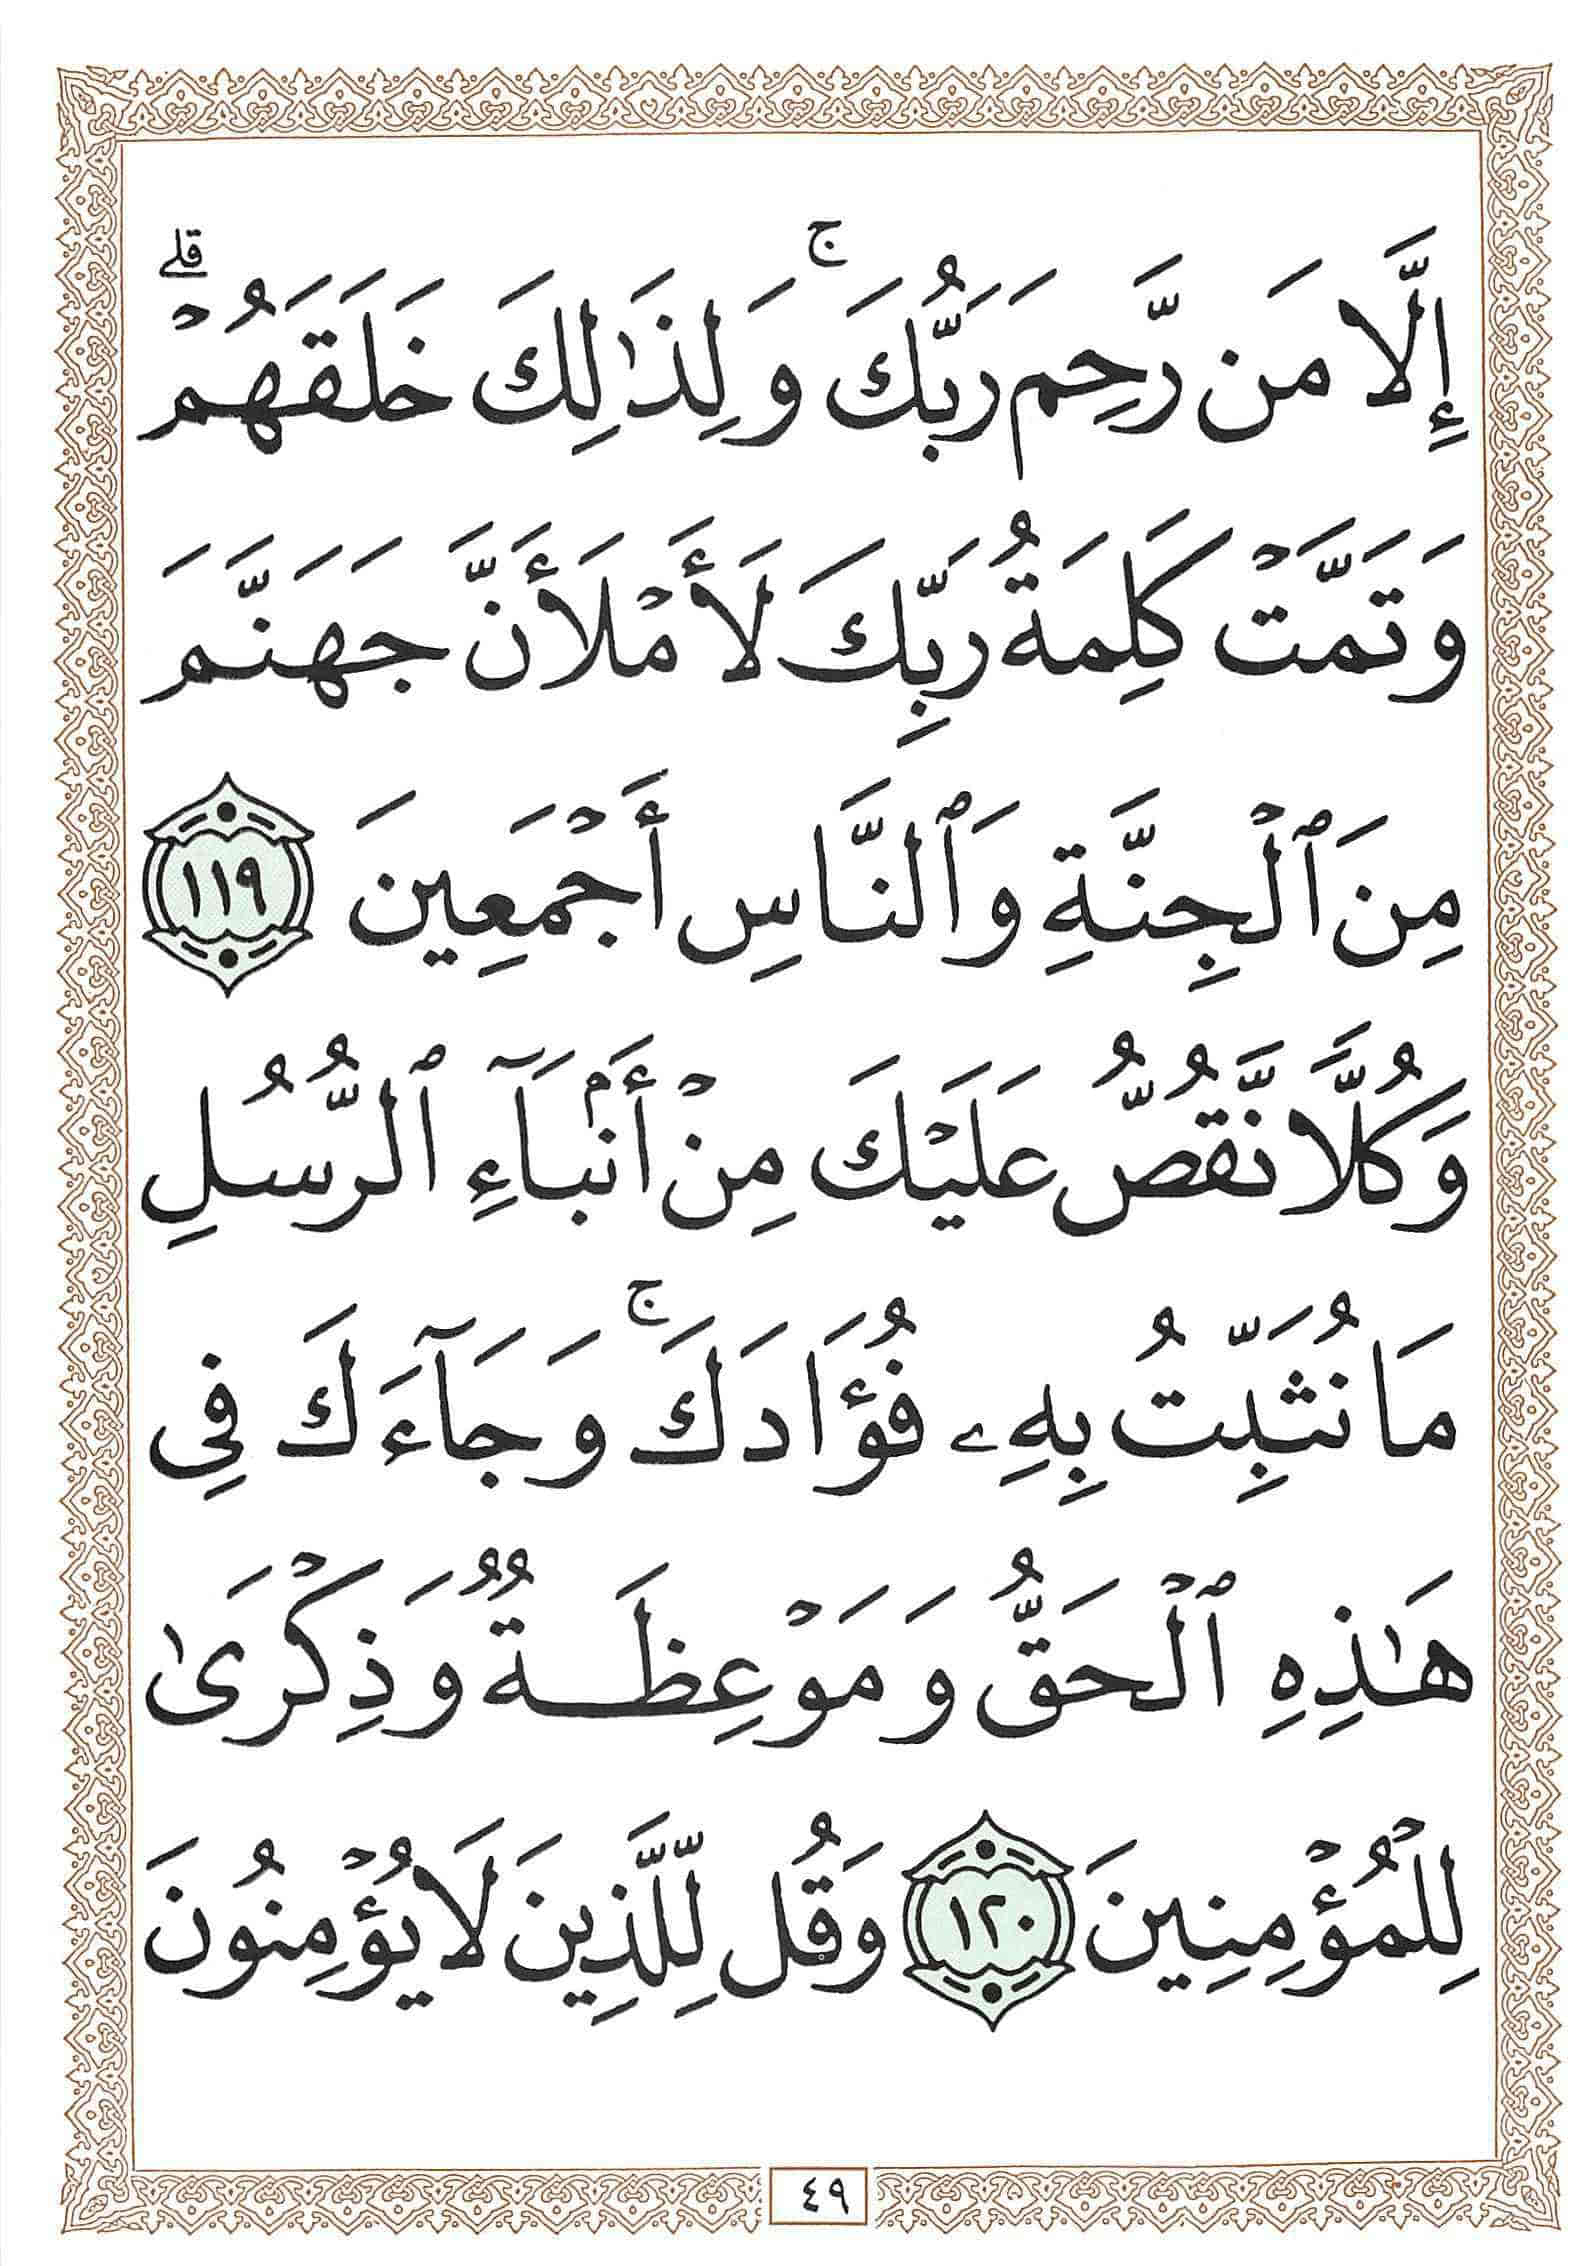 إِلَّا مَن رَّحِمَ رَبُّكَ ۚ وَلِذَٰلِكَ خَلَقَهُمْ ۗ
وَتَمَّتْ كَلِمَةُ رَبِّكَ لَأَمْلَأَنَّ جَهَنَّمَ
مِنَ ٱلْجِنَّةِ وَٱلنَّاسِ أَجْمَعِينَ ١١٩
وَكُلًّا نَّقُصُّ عَلَيْكَ مِنْ أَنۢبَآءِ ٱلرُّسُلِ
مَا نُثَبِّتُ بِهِۦ فُؤَادَكَ ۚ وَجَآءَكَ فِى
هَٰذِهِ ٱلْحَقُّ وَمَوْعِظَةٌ وَذِكْرَىٰ
لِلْمُؤْمِنِينَ ١٢٠ وَقُل لِّلَّذِينَ لَا يُؤْمِنُونَ
٤٩